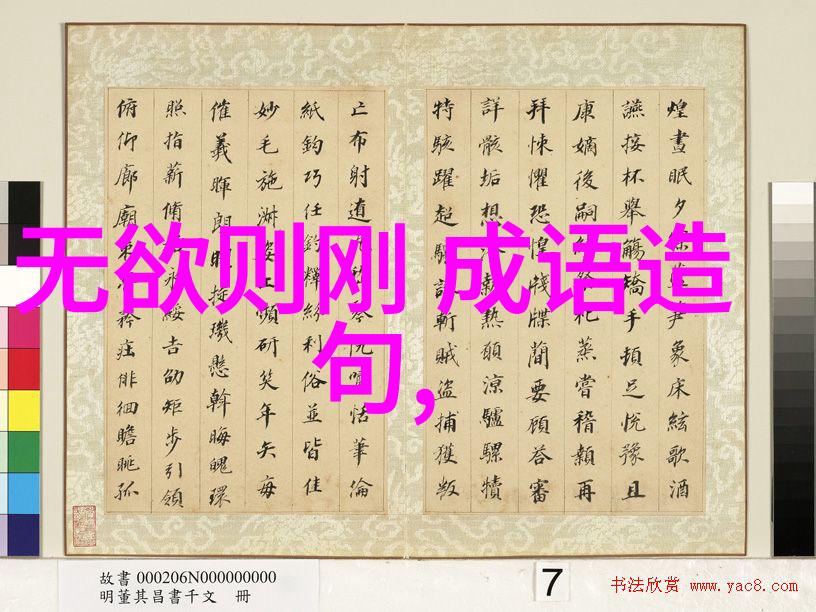 无欲则刚 成语造
句,
煌晝眠夕象床絃歌酒
讌接杯舉觴矯手頓足悅豫且
康嫡後嗣祀蒸嘗稽顙再
拜悚懼恐惶牋牒簡要顧答審
詳骸垢想執熱願涼驢騾犢
特駭躍超斬賊盜捕獲叛
亡布射遼阮嘯恬筆倫
紙鈞巧任釣釋紛利俗並皆佳
妙毛施淑姿工嚬妍笑年矢每
催羲暉朗璣懸斡晦魄環
照指薪修永綏吉劭矩步引領
俯仰廊廟束矜莊徘徊瞻眺孤
故書 000206N000000000
明董其昌書千文 冊
7
书法欣赏 www.yac8.com